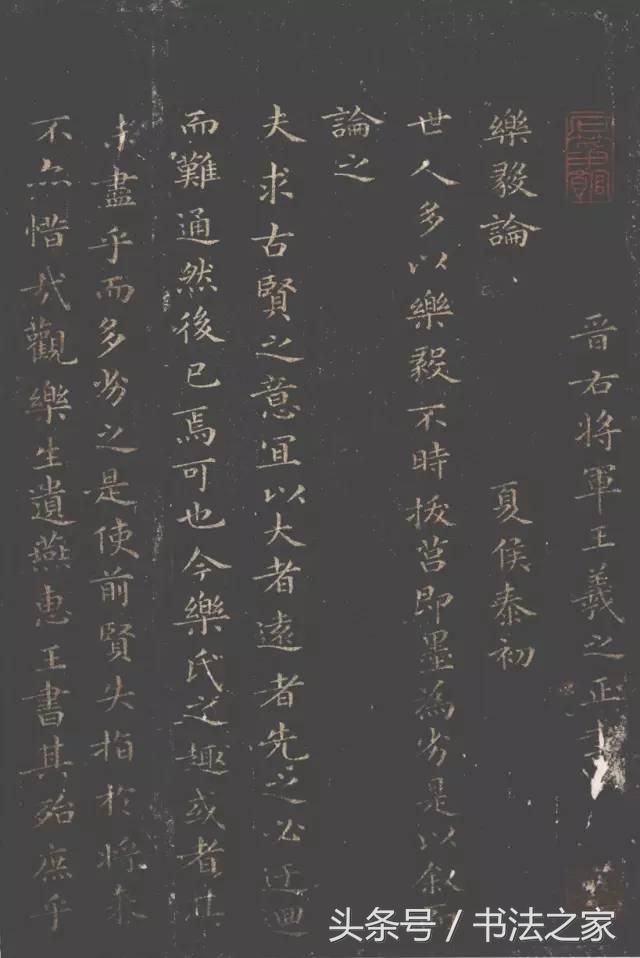 晋右将軍王羲之正書
樂毅論
夏侯泰初
世人多以樂毅不時拔莒即墨為劣是以叙而
論之
夫求古賢之意宜以大者遠者先之必迂迴
而難通然後已焉可也今樂氏之趣或者其
未盡乎而多劣之是使前賢失指於将来
不亦惜哉觀樂生遺燕惠王書其殆庶乎
头条号 / 书法之家